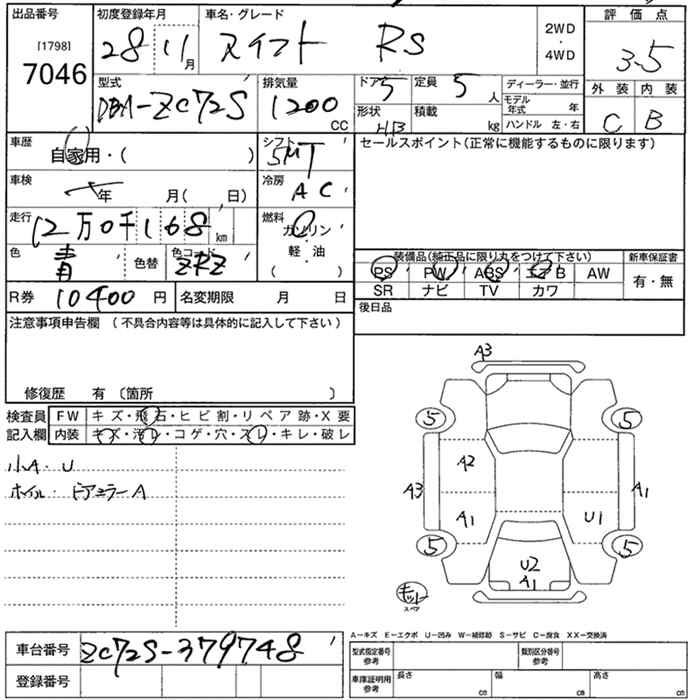 出品番号
[1798]
7046
初度登録年月
28 11月
車名・グレード
スイフト RS
2WD
・
4WD
評価点
3.5
外装 内装
C B
型式
DBA-ZC72S
排気量
1200
CC
ドア
5
形状
HB
定員
5
人
積載
kg
ディーラー・並行
モデル年式 年
ハンドル 左・右
車歴
自家用・( )
シフト
5MT
セールスポイント(正常に機能するものに限ります)
車検
年 月( 日)
冷房
AC
走行
12万0千168km
燃料
ガソリン
・
軽・油
( )
色
青
色替
色コード
ZRZ
装備品(純正品に限り丸をつけて下さい)
PS PW ABS エアB AW
SR ナビ TV カワ
新車保証書
有・無
R券 10400円
名変期限 月 日
後日品
注意事項申告欄 (不具合内容等は具体的に記入して下さい)
修復歴 有 〔箇所 〕
検査員記入欄
FW キズ・飛石・ヒビ割・リペア跡・X要
内装 キズ・汚レ・コゲ・穴・スレ・キレ・破レ
小A・U
ホイル・ドアミラーA
A3
5 5
A2
A3 A1
A1 U1
5 5
U2
A1
キット
スペア
A－キズ E－エクボ U－凹み W－補修跡 S－サビ C－腐食 XX－交換済
車台番号 ZC72S-379748
登録番号
型式指定番号
参考
類別区分番号
参考
車庫証明用
参考
長さ cm
幅 cm
高さ cm